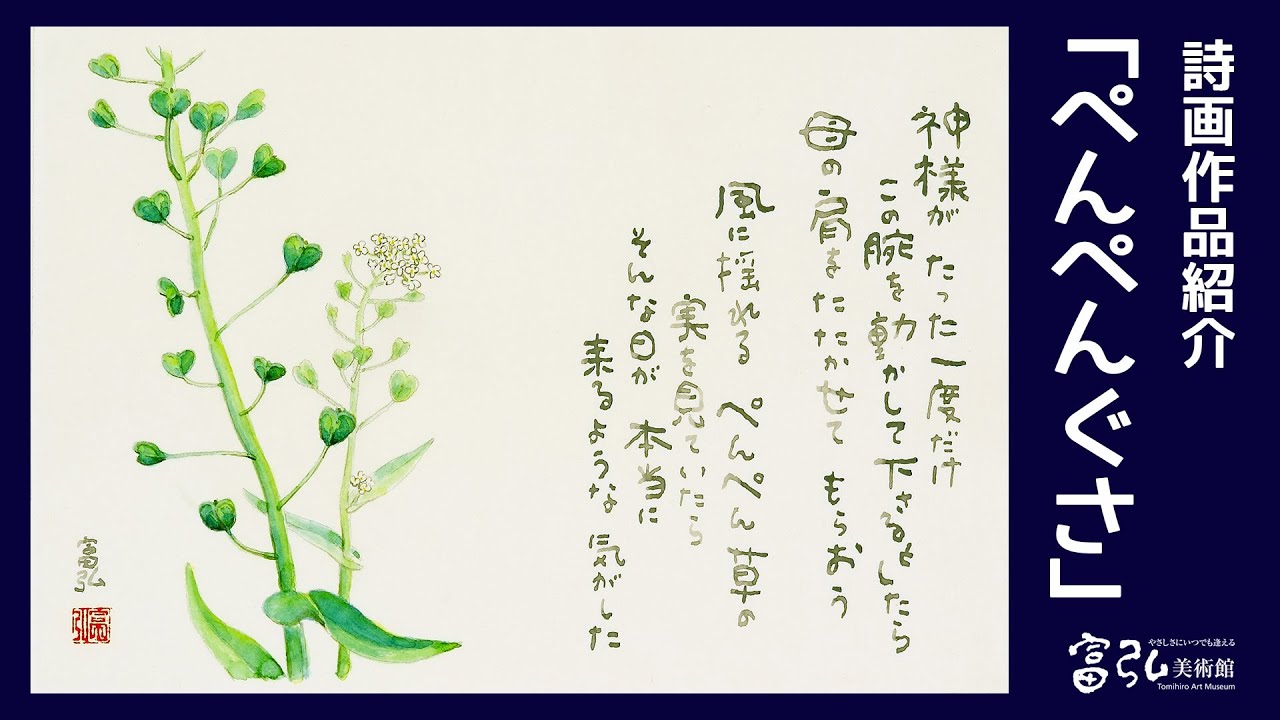 詩画作品紹介
「ぺんぺんぐさ」
神様が たった一度だけ
この腕を動かして下さるとしたら
母の肩をたたかせて もらおう
風に揺れる ぺんぺん草の
実を見ていたら
そんな日が 本当に
来るような 気がした
富弘
富弘
やさしさにいつでも逢える
富弘美術館
Tomihiro Art Museum